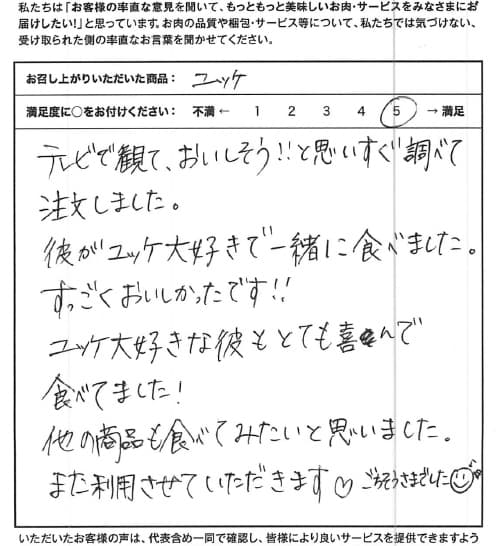 私たちは「お客様の率直な意見を聞いて、もっともっと美味しいお肉・サービスをみなさまにお
届けしたい!」と思っています。お肉の品質や梱包・サービス等について、私たちでは気づけない、
受け取られた側の率直なお言葉を聞かせてください。
お召し上がりいただいた商品： ユッケ
満足度に○をお付けください： 不満 ← 1 2 3 4 5 → 満足
テレビで観て、おいしそう!!と思いすぐ調べて
注文しました。
彼がユッケ大好きで一緒に食べました。
すっごくおいしかったです!!
ユッケ大好きな彼もとても喜んで
食べてました!
他の商品も食べてみたいと思いました。
また利用させていただきます♡ ごちそうさまでした
いただいたお客様の声は、代表含め一同で確認し、皆様により良いサービスを提供できますよう